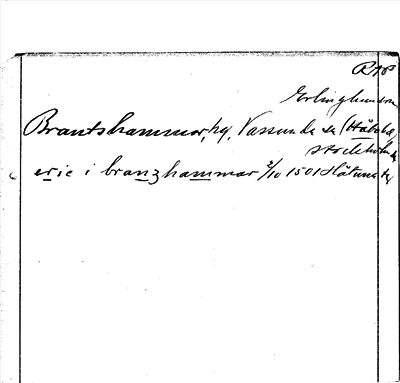 RAP
Erlinghundra
Brantshammar, hg, Vassunda sn (Håbo hd,
Stockholms
eric i branzhammar 2/10 1501 Håtuna